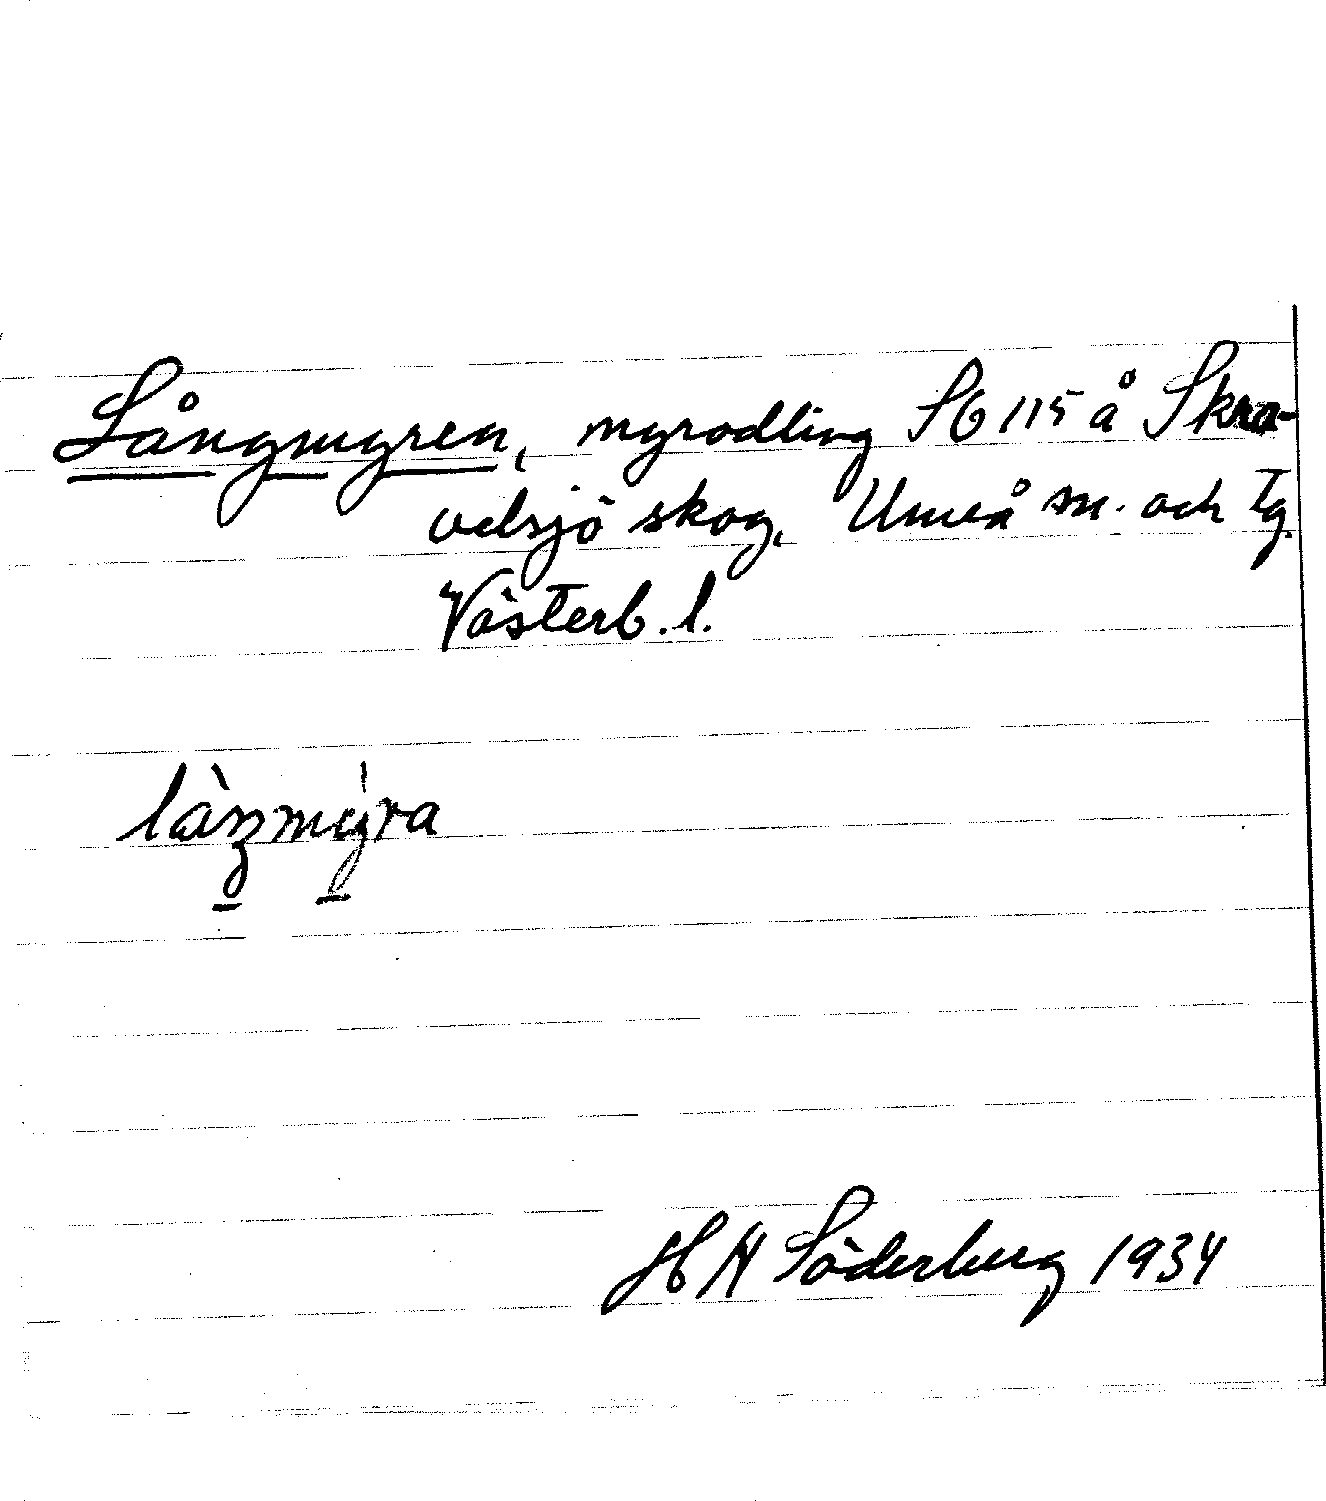 Långmyren, myrodling Sb 115 å Skra-
velsjö skog, Umeå sn. och tg.
Västerb. l.
làŋmýra
H N Söderberg 1934